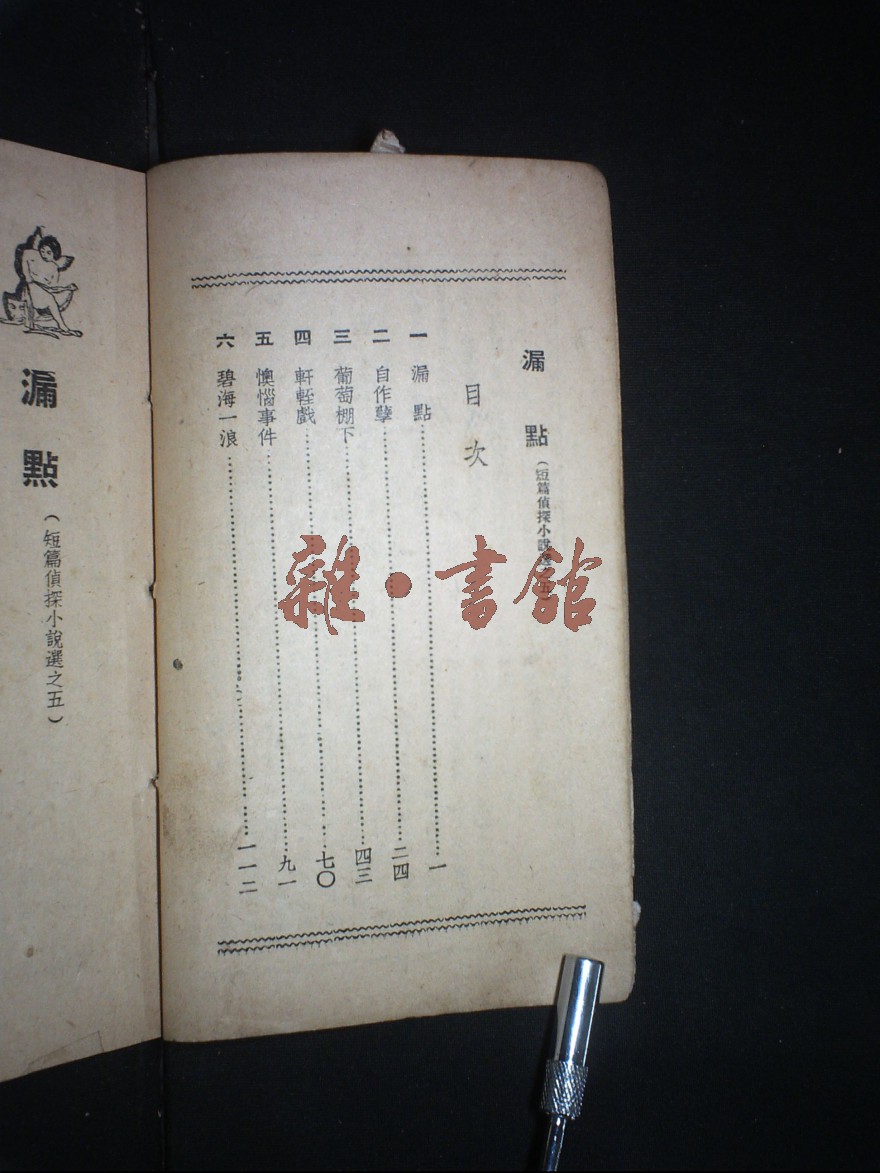 漏點
(短篇偵探小說選之五)
目次
一 漏點……一
二 自作孽……二四
三 葡萄棚下……四三
四 軒輊戲……七〇
五 懊惱事件……九一
六 碧海一浪……一一二
漏點
(短篇偵探小說選之五)
雜·書館